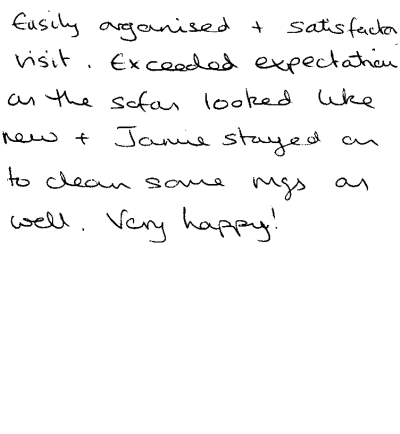 Easily organised + satisfactor
visit. Exceeded expectation
as the sofas looked like
new + Jamie stayed on
to clean some rugs as
well. Very happy!